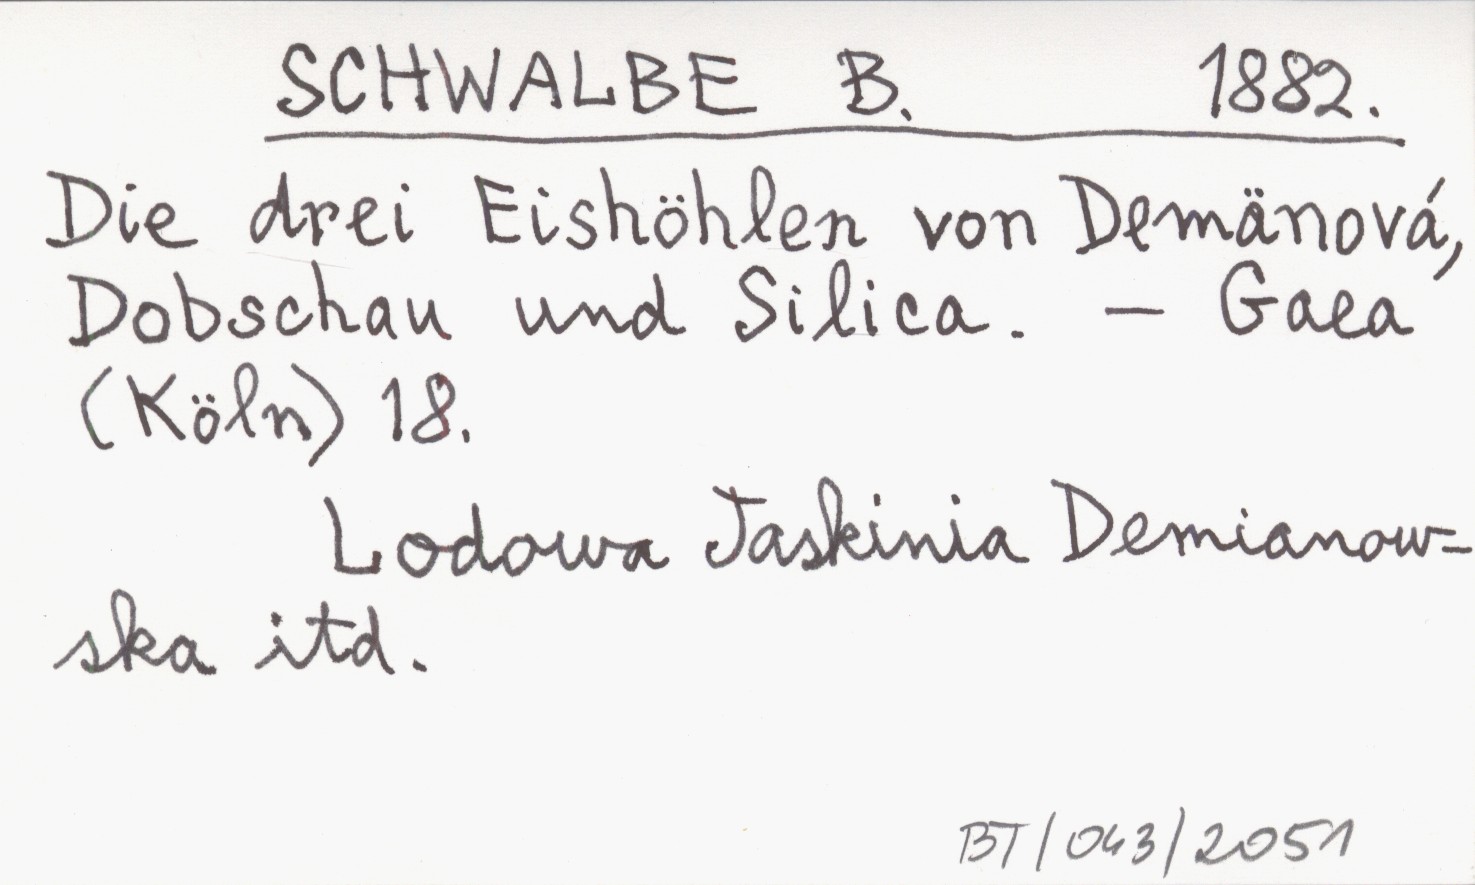 SCHWALBE B. 1882.
Die drei Eishöhlen von Demänová,
Dobschau und Silica. — Gaea
(Köln) 18.
Lodowa Jaskinia Demianow=
ska itd.
BT/043/2051